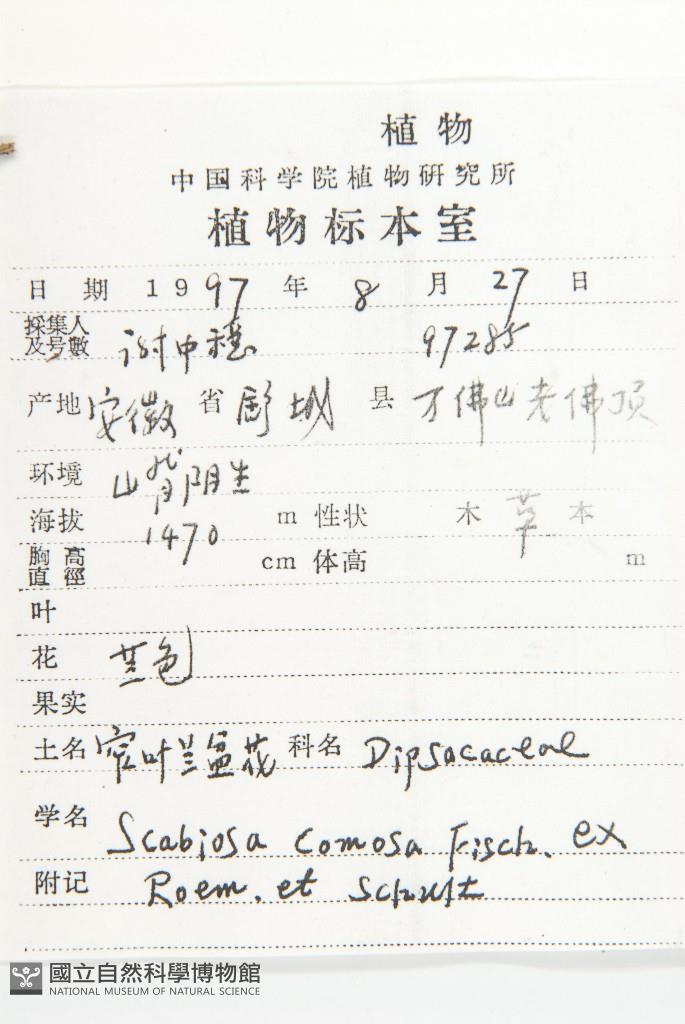 植物
中国科学院植物研究所
植物标本室
日期 1997 年 8 月 27 日
採集人及号數 谢中稳 97285
产地 安徽 省 舒城 县 万佛山老佛顶
环境 山脊阴生
海拔 1470 m 性状 木 草 本
胸高直徑 cm 体高 m
叶
花 兰色
果实
土名 窄叶兰盆花 科名 Dipsacaceae
学名 Scabiosa comosa Fisch. ex
附记 Roem. et Schult
國立自然科學博物館
NATIONAL MUSEUM OF NATURAL SCIENCE